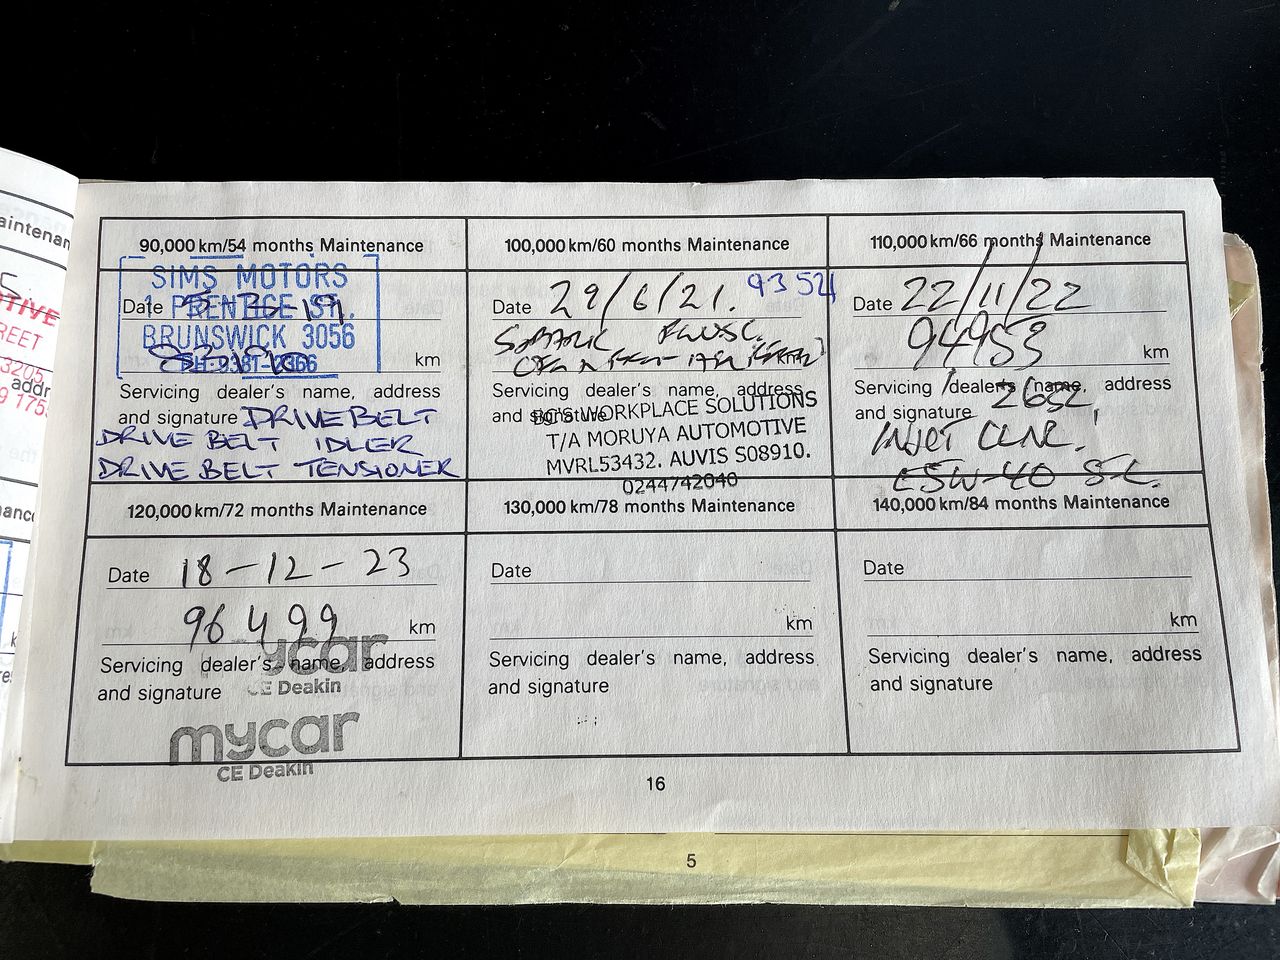 90,000 km/54 months Maintenance
SIMS MOTORS
1 PRENTICE ST.
Date
BRUNSWICK 3056
PH. 9387-
km
Servicing dealer's name, address
and signature DRIVE BELT
DRIVE BELT IDLER
DRIVE BELT TENSIONER
100,000 km/60 months Maintenance
Date 29/6/21.
km
Servicing dealer's name, address
and signature
BC'S WORKPLACE SOLUTIONS
T/A MORUYA AUTOMOTIVE
MVRL53432. AUVIS S08910.
0244742040
110,000 km/66 months Maintenance
Date 22/11/22
94953 km
Servicing dealer's name, address
and signature
120,000 km/72 months Maintenance
Date 18-12-23
96499 km
Servicing dealer's name, address
and signature
mycar
CE Deakin
mycar
CE Deakin
130,000 km/78 months Maintenance
Date
km
Servicing dealer's name, address
and signature
140,000 km/84 months Maintenance
Date
km
Servicing dealer's name, address
and signature
16
5